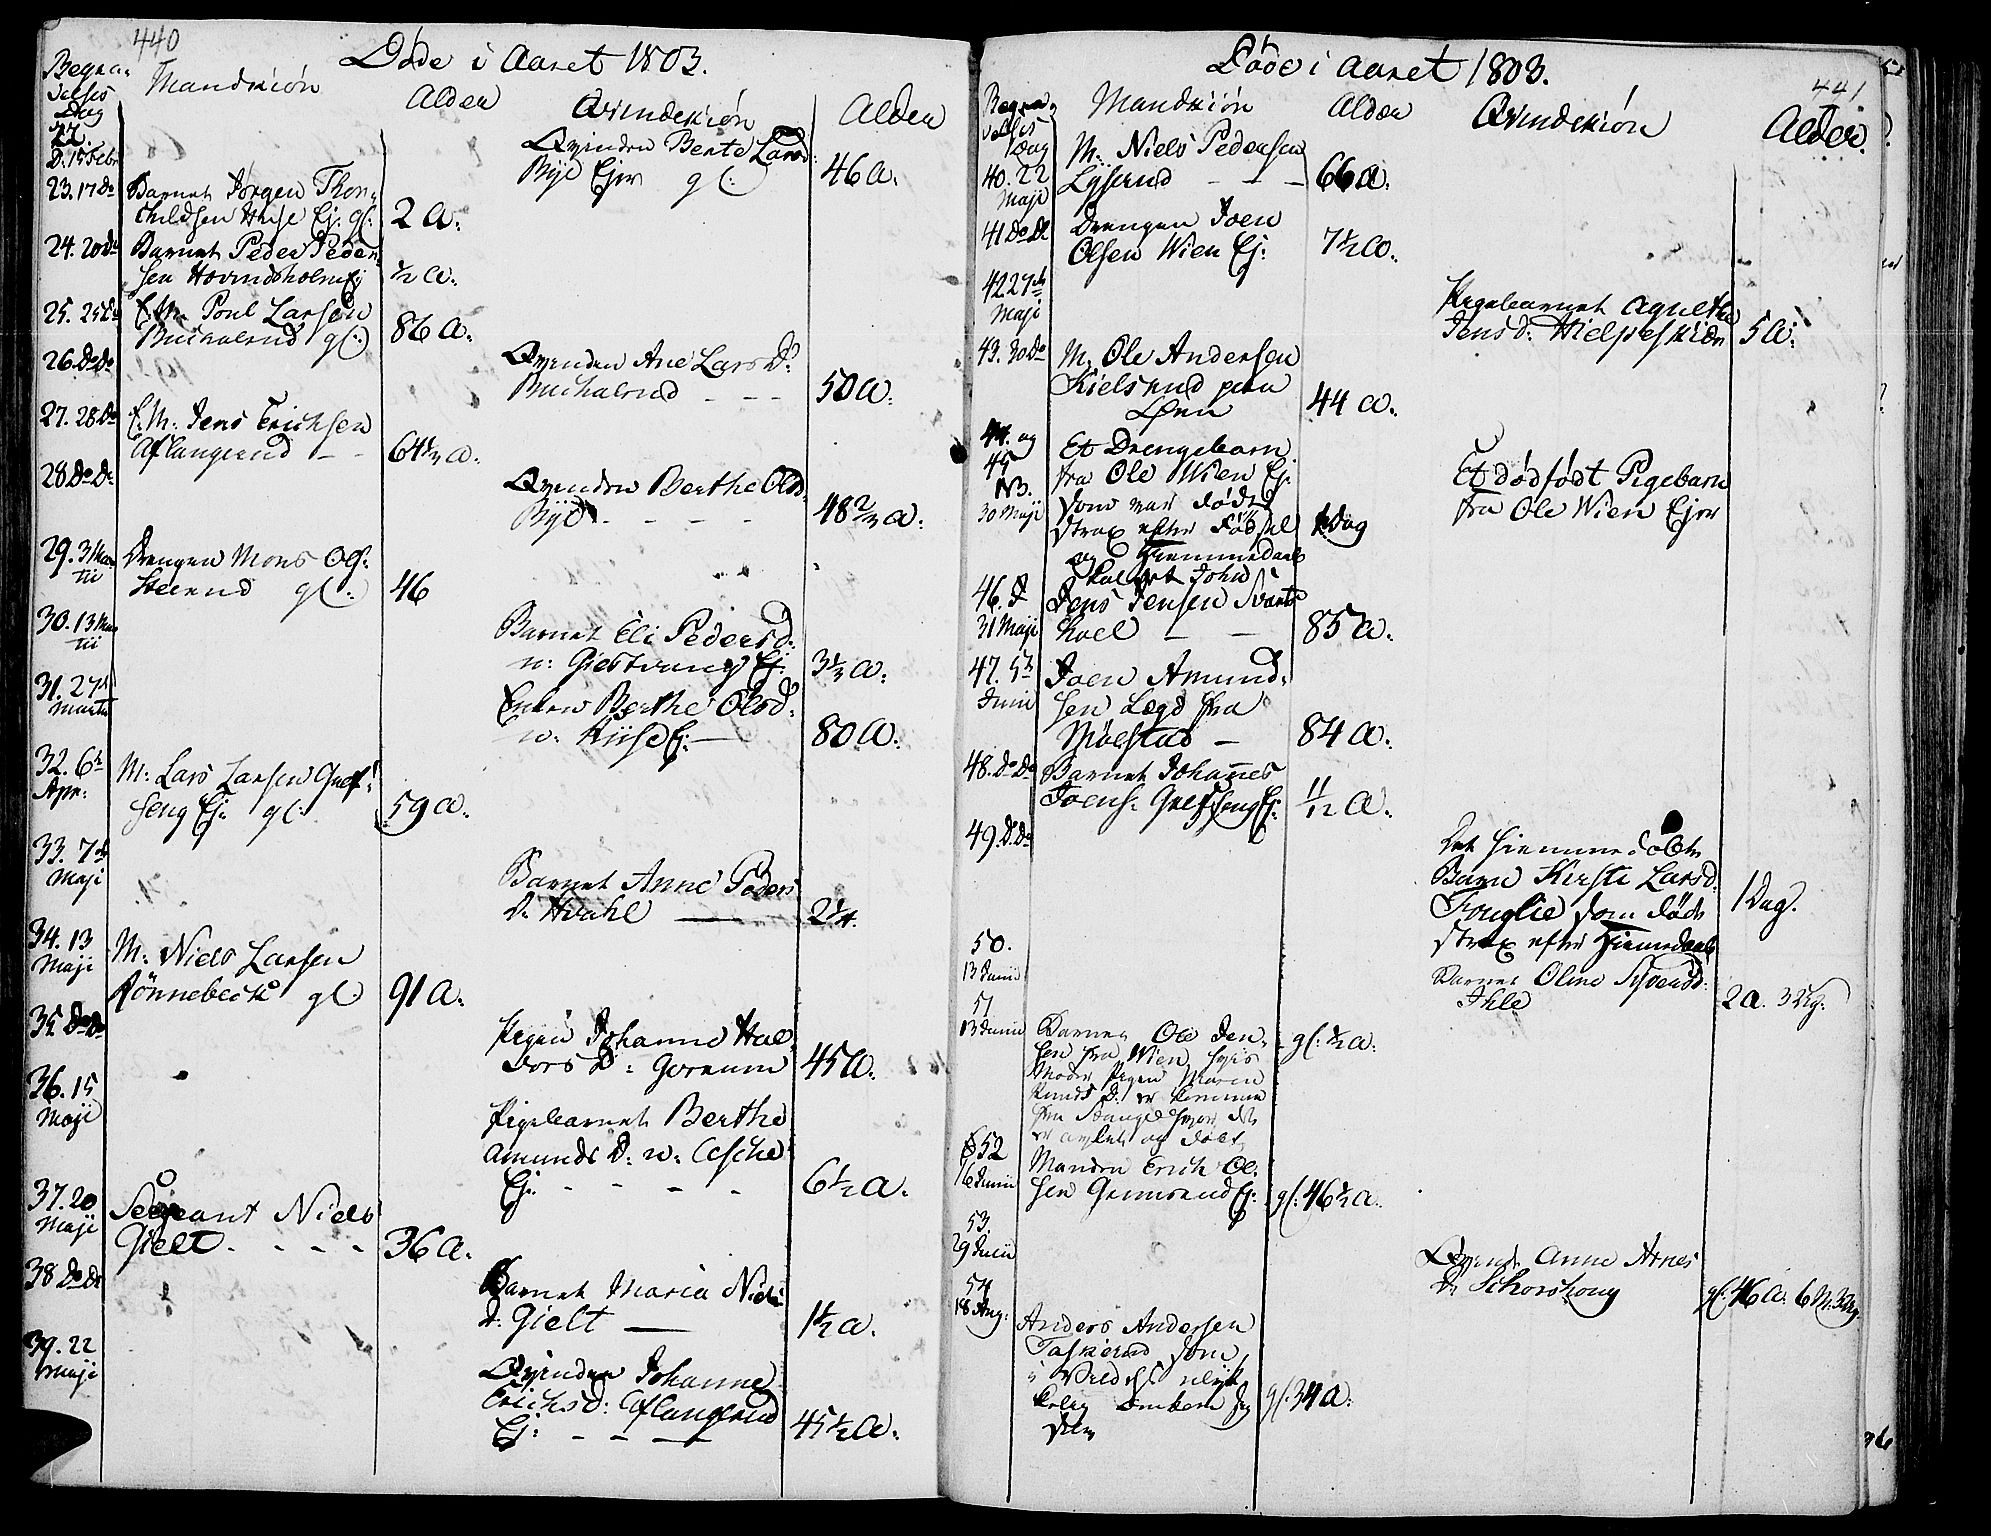 440
Døde i Aaret 1803.
Begra-
velses
Dag
Mandkiön
Alder
Qvindekiön
Alder
22.
D. 15 Febr
Qvinden Berte Larsd:
Bye Ejer gl:
46 a.
23. 17 do
Barnet Jörgen Thor-
childsen Huse Ej: gl:
2 a.
24. 20 do
Barnet Peder Peder-
sen Hovindsholm Ej
½ a.
25. 25 do
E. M. Poul Larsen
Buchalrud gl:
86 a.
26. do do
Qvinden Ane Lars D:
Buchalrud - - -
50 a.
27. 28 do
E. M. Jens Erichsen
Aflangrud - -
64½ a.
28 do do
Qvinden Berthe Olsd:
Bye - - - -
48 2/3 a.
29. 3 Mar-
tii
Drengen Mons Ols:
Steerud gl:
46
30. 13 Mar-
tii
Barnet Eli Pedersd:
n: Giestvang Ej:
3½ a.
31. 27d
Martii
Enken Berthe Olsd:
n: Kiise Ej: -
80 a.
32. 6te
Apr:
M: Lars Larsen Gref-
seng Ej: gl:
59 a.
33. 7de
Maji
Barnet Anne Peders
D: Hvahl -
2¼
34. 13
Maji
M: Niels Larsen
Rönnebeck gl:
91 a.
35. do do
Pigen Johanne Hal-
dors D: Gorum
45 a.
36. 15
Maji
Pigebarnet Berthe
Amunds D: n: Asche
Ej: - - - -
6½ a.
37. 20
Maji
Sergeant Niels
Gielt. - - - -
36 a.
38 do do
Barnet Maria Niels
d: Gielt -
1½ a.
39. 22
Maji
Qvinden Johanne
Erichsd: Aflangrud
Ej: - - -
45½ a.
441
Døde i Aaret 1803.
Begra-
velses
Dag
Mandkiön
Alder
Qvindekiön
Alder.
40. 22
Maji
M: Niels Pedersen
Lyserud - - -
66 a.
41 do do
Drengen Joen
Olsen Wien Ej:
7½ a.
42 27de
Maji
Pigebarnet Agnethe
Jensd: Hielpeskier
5 a:
43. 30 do
M: Ole Andersen
Kielsrud paa
Öen
44 a.
44. og
45
NB.
30 Maji
Et Drengebarn
fra Ole Wien Ej:
som var döded
strax efter Födsel
og Hiemmedaab
kaldet John
1 Dag
Et dødfødt Pigebarn
fra Ole Wien Ejer
46. d
31 Maji
Jens Jensen Svart-
hoel - -
85 a.
47. 5te
Junii
Joen Amund-
sen Lægd fra
Møestad -
84 a.
48. do do
Barnet Johannes
Joens: Grefseng Ej:
11/12 a.
49. d. do
Det hiemmedöbte
Barn Kirsti Larsd:
Fouglie som döde
strax efter Hiemedaab
1 Dag.
50.
13 Junii
Barnet Oline Syversd:
Ihle
2 a. 3 Dg:
51
13 Junii
Barnet Ole Jen-
sen fra Wien hvis
Moder Pigen Maren
Knuds D: er kommen
fra Stange hvor det
er avlet og döbt
gl: ½ a:
52
16 Junii
Manden Erich Ol-
sen Grimsrud Ej:
gl: 46½ a.
53.
29 Junii
Qvind: Anne Arnes
D: Schorskong
gl. 46 a: 6 M. 3 Dg
54
18 Aug:
Anders Andersen
Taskerud som
i Veldst ulyk-
kelig omkom
gl: 34 a: